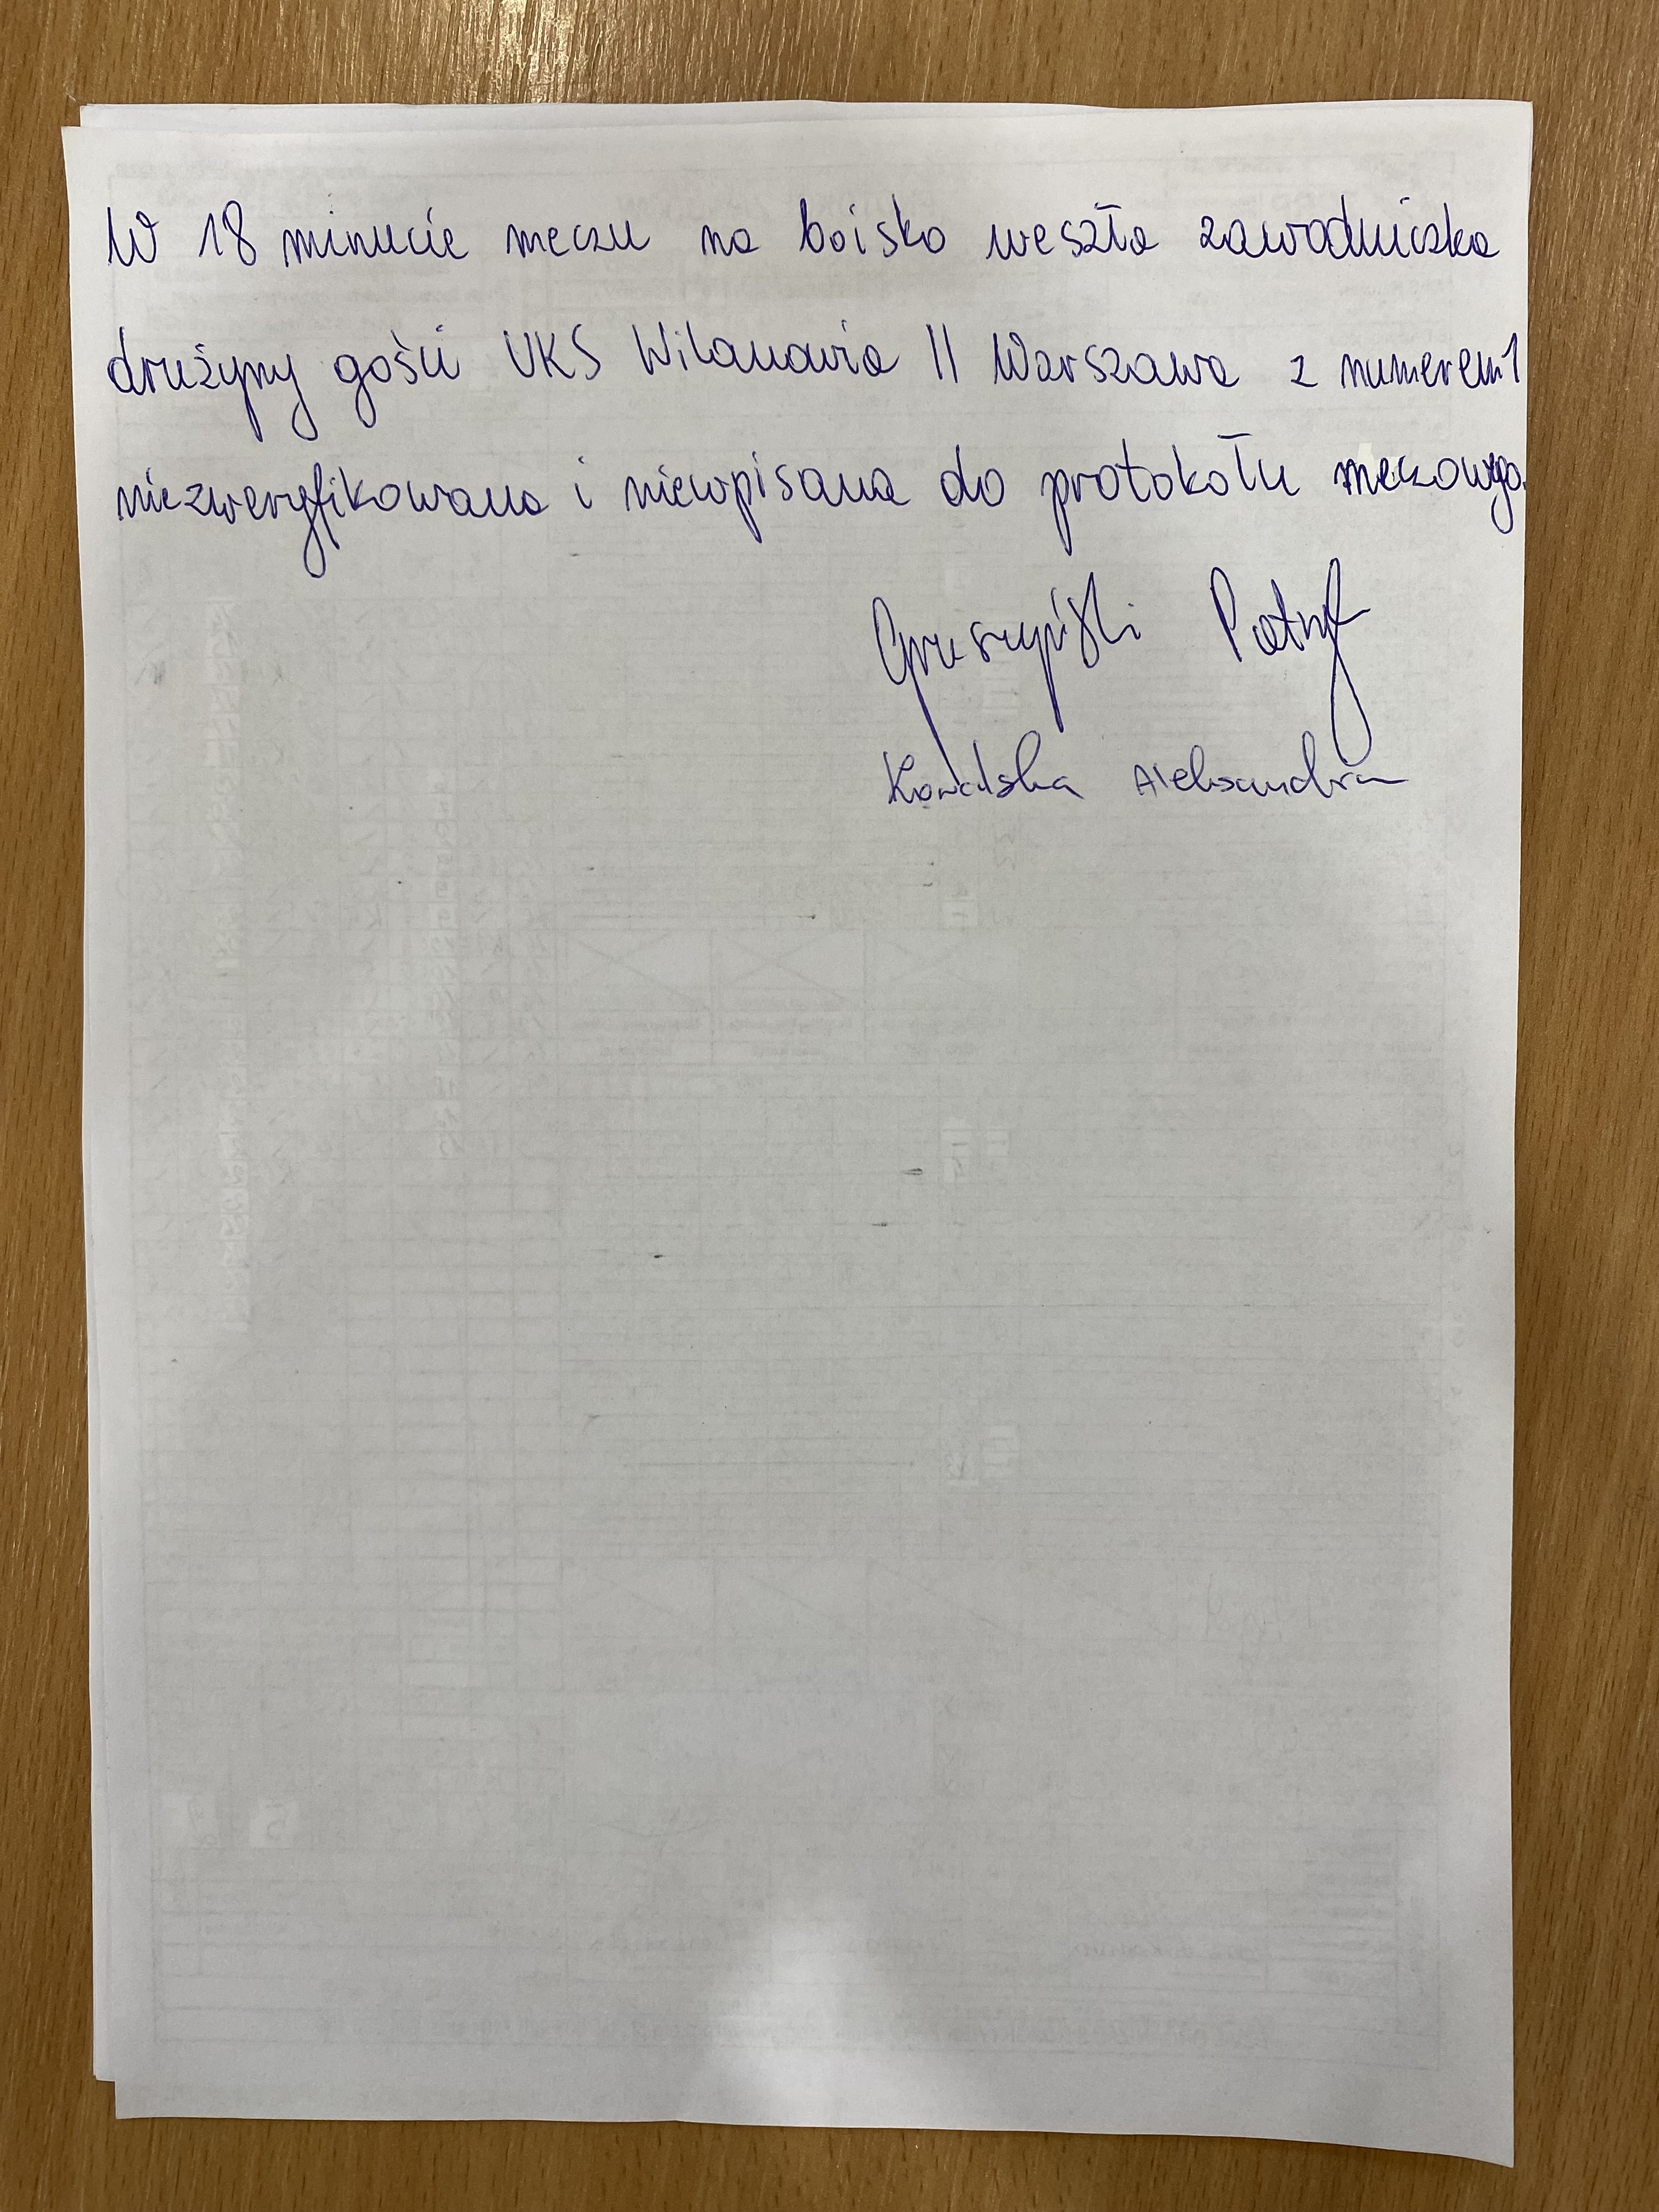 W 18 minucie meczu na boisko weszła zawodniczka
drużyny gości UKS Wilanovia II Warszawa z numerem 1
niezweryfikowana i niewpisana do protokołu meczowego.
Patryk
Kowalska Aleksandra